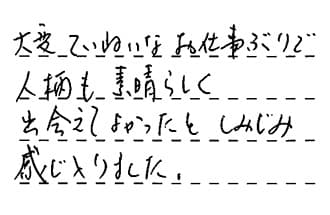 大変ていねいなお仕事ぶりで
人柄も素晴らしく
出会えてよかったと しみじみ
感じとりました。